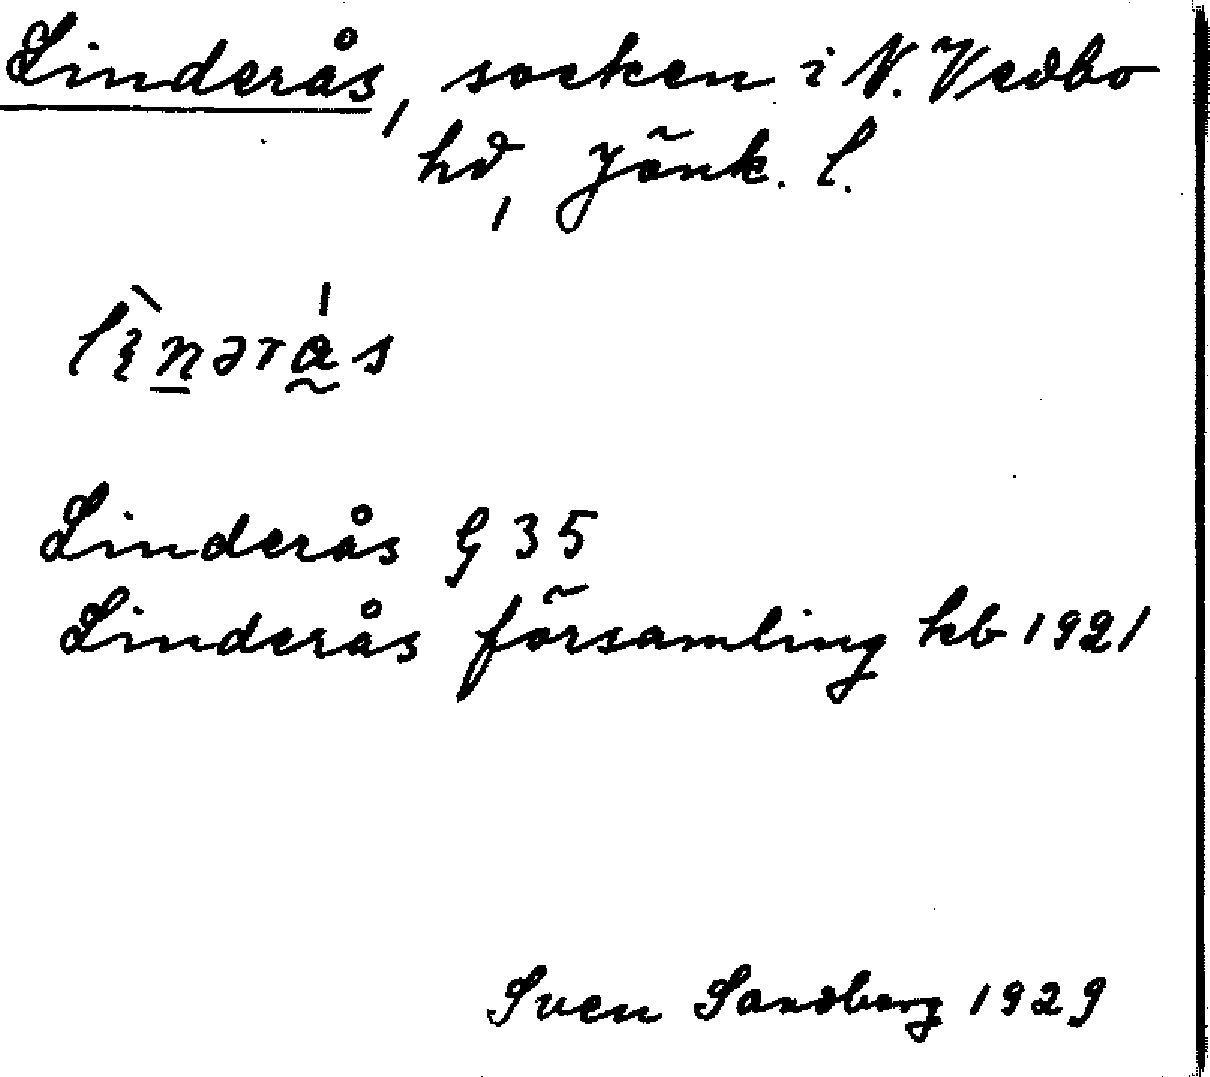 Linderås, socken i N. Vedbo
hd, Jönk. l.
Linderås G 35
Linderås församling kb 1921
Sven Sandberg 1929